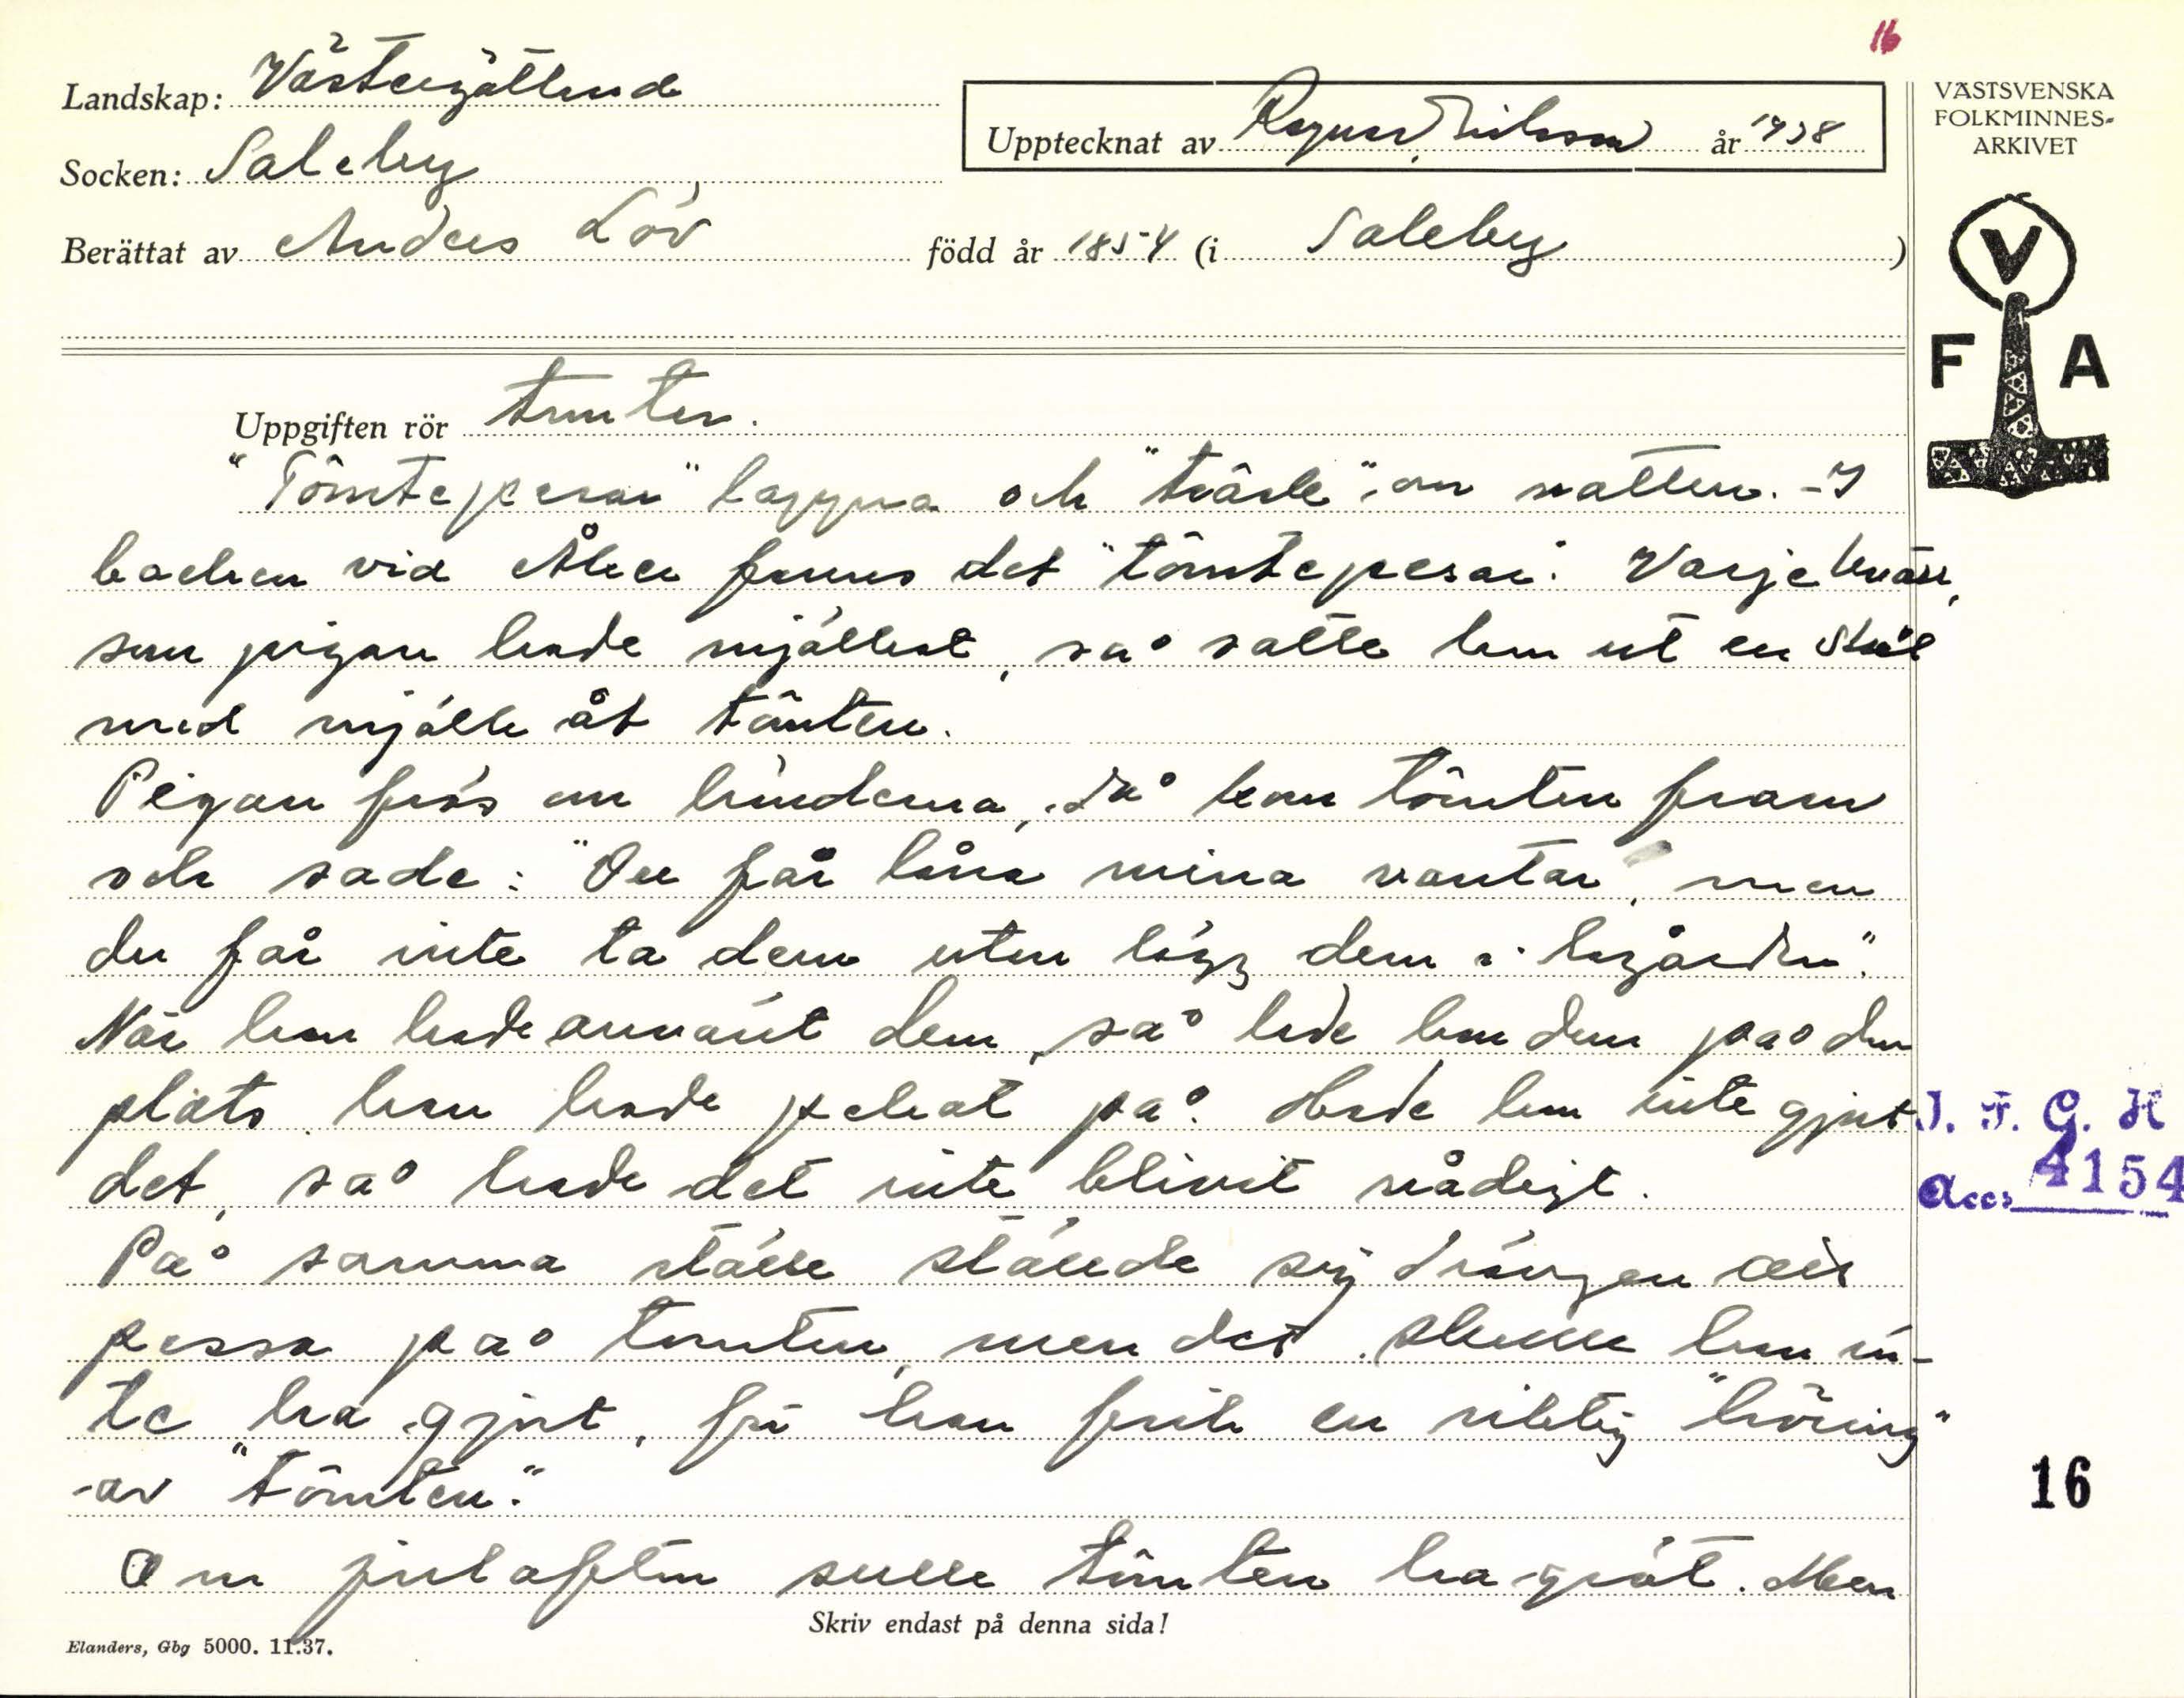 16
Landskap: Västergötland
Socken: Saleby
Upptecknat av Ragnar Nilsson år 1938
Berättat av Anders Löv född år 1854 (i Saleby)
VÄSTSVENSKA
FOLKMINNES-
ARKIVET
V
F A
Uppgiften rör tomter.
"Tômteperar" lappra och om natten. - I
backen vid fanns det "tômteperar". Varje kväll,
som pigan hade mjölkat, så satte hon ut en skål
med mjölk åt tômten.
Pigan frös om händerna, då kom tômten fram
och sade: "Du får låna mina vantar, men
du får inte ta dem utan lägg dem i lagården".
När hon hade använt dem, så lade hon dem på den
plats han hade pekat på. Hade hon inte gjort
det, så hade det inte blivit nådigt.
På samma ställe ställde sig drängen att
passa på tomten, men det skulle han in-
te ha gjort, för han fick en riktig "höring"
av "tômten".
Om julafton skulle tômten ha gröt. Men
I. F. G. H
Acc. 4154
16
Skriv endast på denna sida!
Elanders, Gbg 5000. 11.37.